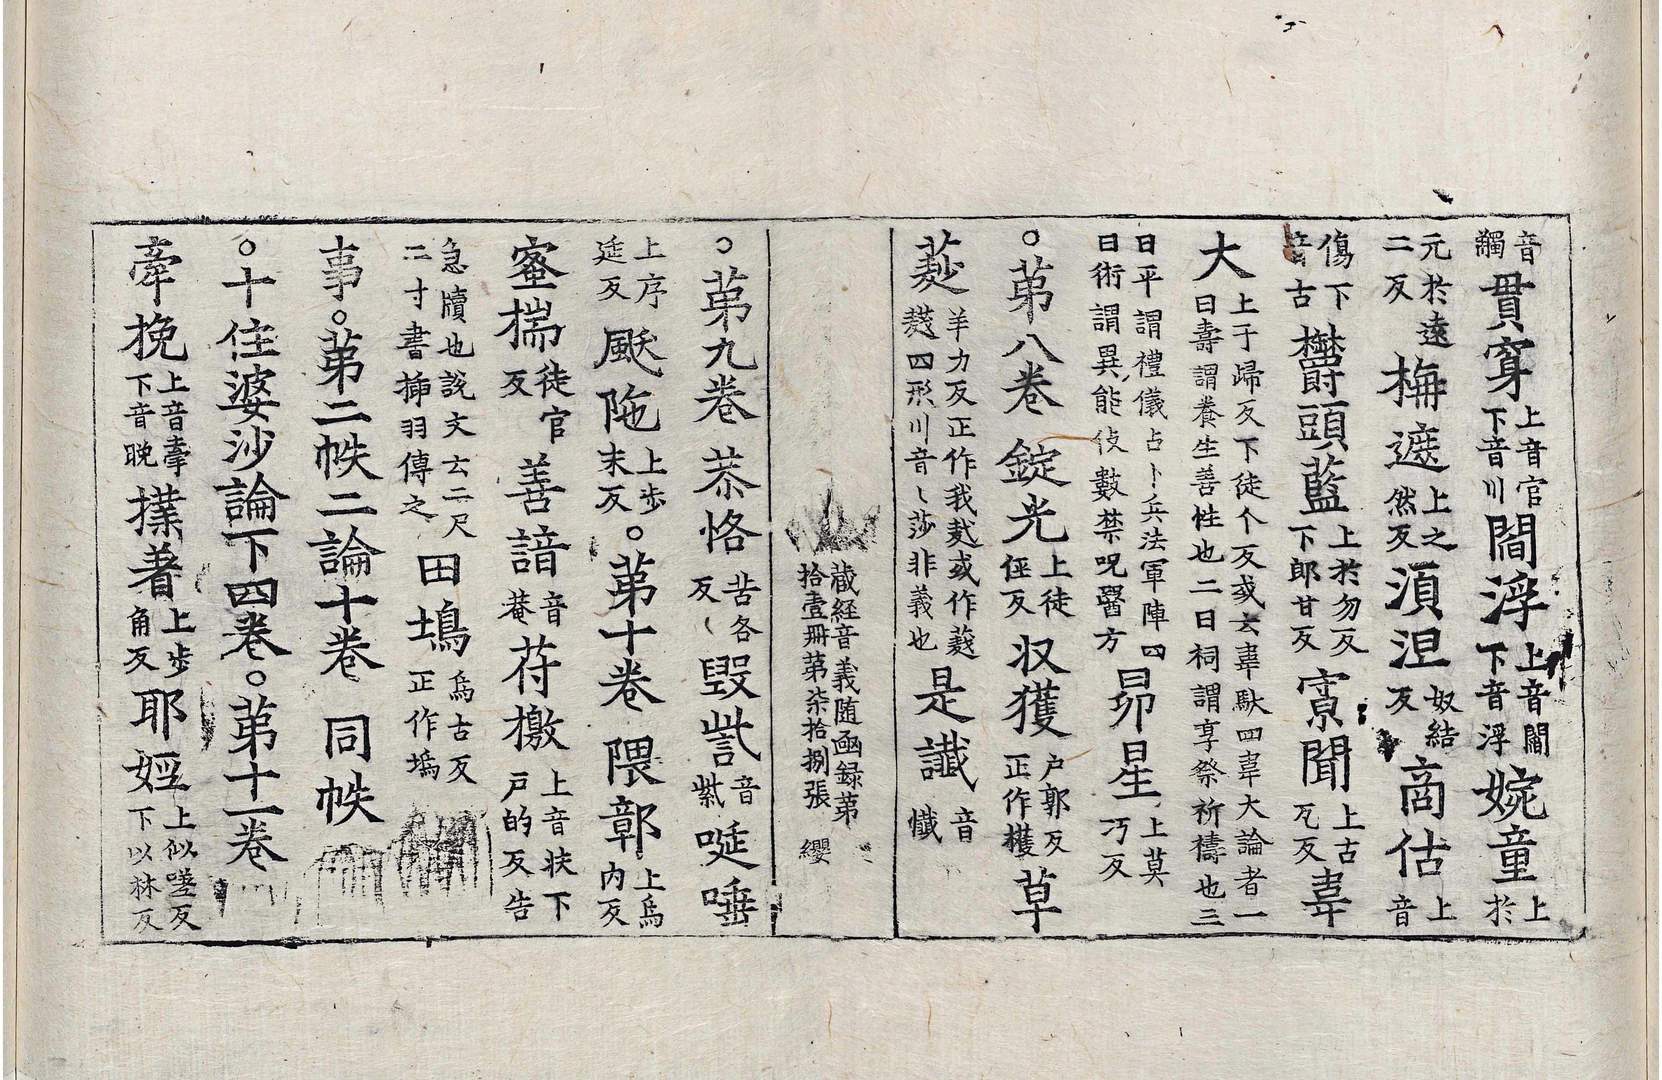 音觸貫穿上音官下音川閻浮上音閻下音浮婉童上於
元於遠二反栴遮上之然反湏涅奴結反啇估上音
傷下音古欎頭藍上於勿反下郎甘反寮聞上古瓦反韋
大上于歸反下徒个反或云韋馱四韋大論者一曰壽謂養生善性也二曰祠謂享祭祈禱也三
曰平謂禮儀占卜兵法軍陣四曰術謂異能伎數禁呪醫方昴星上莫巧反
○苐八卷錠光上徒侹反収獲户郭反正作擭草
羊力反正作我或作四形川音〻莎非義也是讖音懺
藏經音義随凾録苐拾壹冊苐柒拾捌張 纓
○苐九卷恭恪苦各反毁訾音紫唌唾
上序延反颰陁上步末反○苐十卷隈鄣上烏内反
蜜揣徒官反善諳音菴苻檄上音扶下户的反告
急牘也說文云二尺二寸書揷羽傳之田塢烏古反正作塢
事○苐二帙二論十卷 同帙
○十住婆沙論下四卷○苐十一卷
牽挽上音牽下音晚撲著上步角反耶婬上似嗟反下以林反